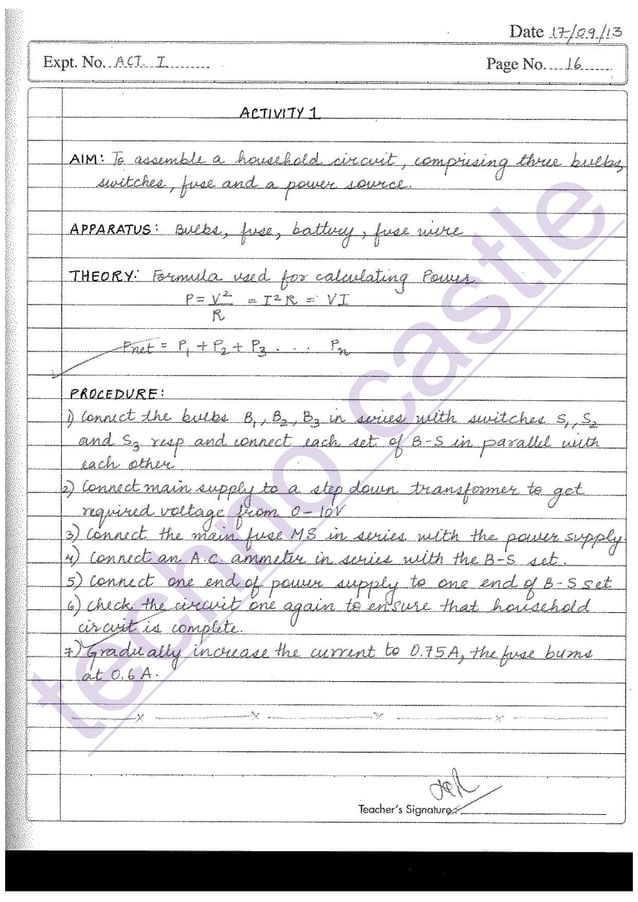 Date 17/09/13
Expt. No. ACT. I
Page No. 16
ACTIVITY 1
AIM: To assemble a household circuit, comprising three bulbs,
switches, fuse and a power source.
APPARATUS: Bulbs, fuse, battery, fuse wire
THEORY: Formula used for calculating Power
P = V²/R = I²R = VI
Pnet = P₁ + P₂ + P₃ . . . . Pₙ
PROCEDURE:
1) Connect the bulbs B₁, B₂, B₃ in series with switches S₁, S₂
and S₃ resp and connect each set of B-S in parallel with
each other
2) Connect main supply to a step down transformer to get
required voltage from 0-10V
3) Connect the main fuse MS in series with the power supply.
4) Connect an A.C. ammeter in series with the B-S set.
5) Connect one end of power supply to one end of B-S set
6) Check the circuit one again to ensure that household
circuit is complete.
7) Gradually increase the current to 0.75A, the fuse burns
at 0.6A.
Teacher's Signature:
techno castle